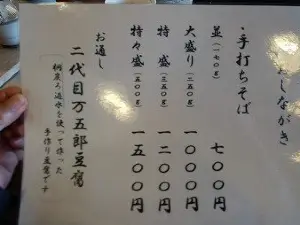 おしながき
・手打ちそば
並（一七〇g） 七〇〇円
大盛り（二五〇g） 一〇〇〇円
特盛（三五〇g） 一二〇〇円
特々盛（五〇〇g） 一五〇〇円
お通し
二代目万五郎豆腐
使って作った
手作り豆腐です